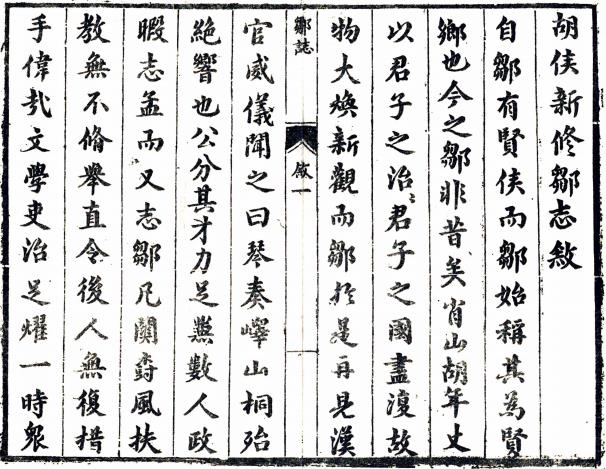 胡侯新修鄒志敘
自鄒有賢侯而鄒始稱其為賢
鄉也今之鄒非昔矣肖山胡年丈
以君子之治〻君子之國盡復故
物大煥新觀而鄒於是再見漢
鄒誌
敘一
官威儀聞之曰琴奏嶧山桐殆
絕響也公分其才力足兼數人政
暇志孟而又志鄒凡關風扶
教無不偹舉直令後人無復措
手偉哉文學吏治足燿一時眾